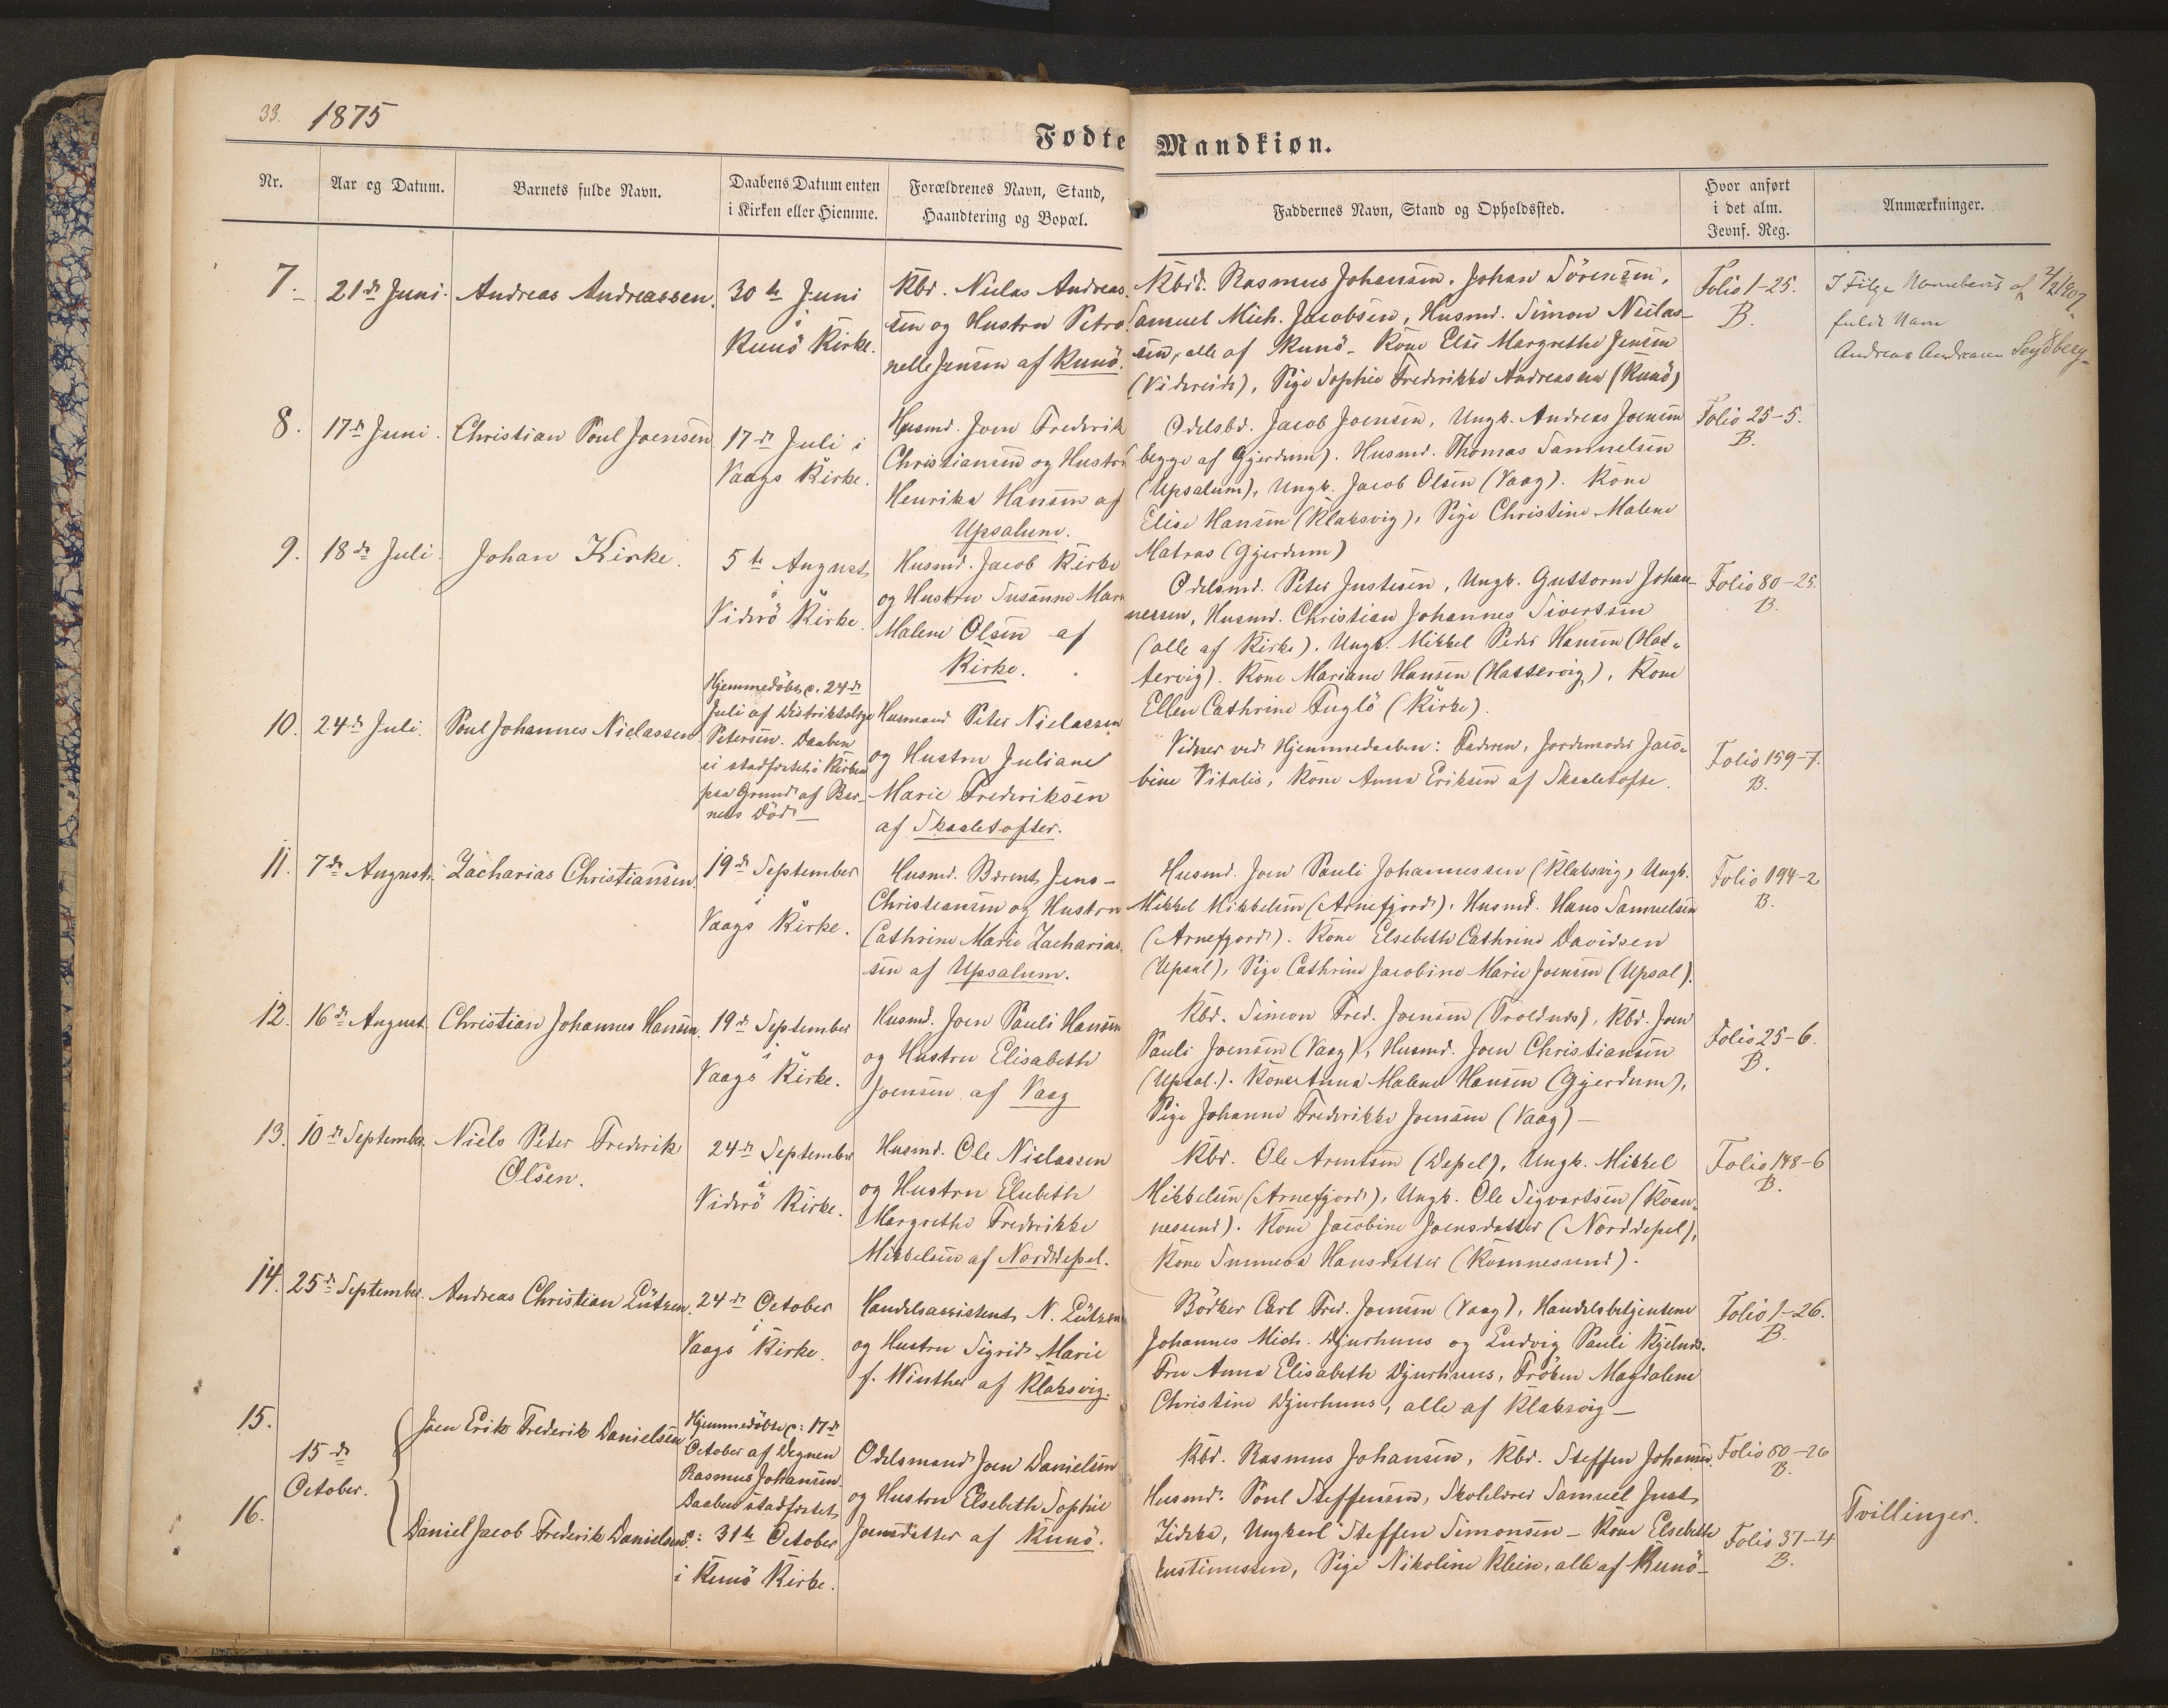 33. 1875
Fødte Mandkiøn.
Nr.
Aar og Datum.
Barnets fulde Navn.
Daabens Datum enten
i Kirken eller Hiemme.
Forældrenes Navn, Stand,
Haandtering og Bopæl.
Faddernes Navn, Stand og Opholdssted.
Hvor anført
i det alm.
Jevnf. Reg.
Anmærkninger.
7.
21de Juni.
Andreas Andreassen.
30te Juni
i
Kunö Kirke.
Kbd. Niclas Andreas
sen og Hustru Petro
nelle Jensen af Kunö.
Kbdr. Rasmus Johansen, Johan Sörensen,
Samuel Mich. Jacobsen, Husmd. Simon Niclas-
sen, alle af Kunö - Kone Else Margrethe Jensen
(Videreide), Pige Sophie Frederikke Andreassen (Kunö)
Folio 1-25.
B.
I Følge Navnebevis af
fulde Navn
Andreas Andreasen
8.
17de Juni.
Christian Poul Joensen
17de Juli i
Vaags Kirke.
Husmd. Joen Frederik
Christiansen og Hustru
Henrika Hansen af
Upsalum.
Odelsbd. Jacob Joensen, Ungk. Andreas Joensen
begge af Gjerdum). Husmd. Thomas Samuelsen
(Upsalum), Ungk. Jacob Olsen (Vaag). Kone
Elise Hansen (Klaksvig), Pige Christine Malene
Matras (Gjerdum)
Folio 25-5.
B.
9.
18de Juli.
Johan Kirke.
5te August
i
Viderö Kirke.
Husmd. Jacob Kirke
og Hustru Susanne Marie
Malene Olsen af
Kirke.
Odelsmd. Peter Justesen, Ungk. Guttorm Johan-
nessen, Husmd. Christian Johannes Sivertsen
(alle af Kirke). Ungk. Mikkel Peder Hansen (Hat-
tervig). Kone Mariane Hansen (Hattervig), Kone
Ellen Cathrine Fuglö (Kirke).
Folio 80-25.
B.
10.
24de Juli.
Poul Johannes Niclassen
Hjemmedöbt d. 24de
Juli af Distriktslæge
Petersen. Daaben
ei stadfæstet i Kirken
paa Grund af Bar-
nets Död
Husmand Peter Niclassen
og Hustru Juliane
Marie Frederiksen
af Skaaletofter.
Vidner ved Hjemmedaaben: Faderen, Jordemoder Jaco-
bine Vitalis, Kone Anna Eriksen af Skaaletofte.
Folio 159-7.
B.
11.
7de August.
Zacharias Christiansen.
19de September
i
Vaags Kirke.
Husmd. Berent Jens-
Christiansen og Hustru
Cathrine Marie Zacharias-
sen af Upsalum.
Husmd. Joen Pauli Johannessen (Klaksvig), Ungk.
Mikkel Mikkelsen (Arnefjord), Husmd. Hans Samuelsen
(Arnefjord). Kone Elsebeth Cathrine Davidsen
(Upsal), Pige Cathrine Jacobine Marie Joensen (Upsal).
Folio 194-2
B.
12.
16de August.
Christian Johannes Hansen.
19de September
i
Vaags Kirke.
Husmd. Joen Pauli Hansen
og Hustru Elisabeth
Joensen af Vaag
Kbd. Simon Fred. Joensen (Troldnæs), Kbd. Joen
Pauli Joensen (Vaag), Husmd. Joen Christiansen
(Upsal.). Kone Anna Malene Hansen (Gjerdum),
Pige Johanne Frederikke Joensen (Vaag) -
Folio 25-6.
B.
13.
10de September.
Niels Peter Frederik
Olsen.
24de September
i
Viderö Kirke.
Husmd. Ole Niclassen
og Hustru Elsebeth
Margrethe Frederikke
Mikkelsen af Norddepel.
Kbd. Ole Arentsen (Depel), Ungk. Mikkel
Mikkelsen (Arnefjord), Ungk. Ole Sigvartsen (Kvan-
nesund). Kone Jacobine Joensdatter (Norddepel),
Kone Sunneva Hansdatter (Kvannesund).
Folio 148-6
B.
14.
25de September.
Andreas Christian Lützen.
24de October
i
Vaags Kirke.
Handelsassistent N. Lützen
og Hustru Sigrid Marie
f. Winther af Klaksvig.
Bödker Carl Fred. Joensen (Vaag), Handelsbetjentene
Johannes Mich. Djurhuus og Ludvig Pauli Kjelnæs.
Fru Anna Elisabeth Djurhuus, Fröken Magdalene
Christine Djurhuus, alle af Klaksvig -
Folio 1-26.
B.
15.
15de
October.
16.
Joen Erik Frederik Danielsen
Daniel Jacob Frederik Danielsen
Hjemmedöbte d: 17de
October af Degnen
Rasmus Johansen.
Daaben stadfæstet
d: 31te October
i Kunö Kirke.
Odelsmand Joen Danielsen
og Hustru Elsebeth Sophie
Joensdatter af Kunö.
Kbd. Rasmus Johansen, Kbd. Steffen Johansen.
Husmd. Poul Steffensen, Skolelærer Samuel Just
Zidska, Ungkarl Steffen Simonsen - Kone Elsebeth
Justinussen, Pige Nikoline Klein, alle af Kunö -
Folio 80-26
B.
Folio 37-4
B.
Tvillinger.